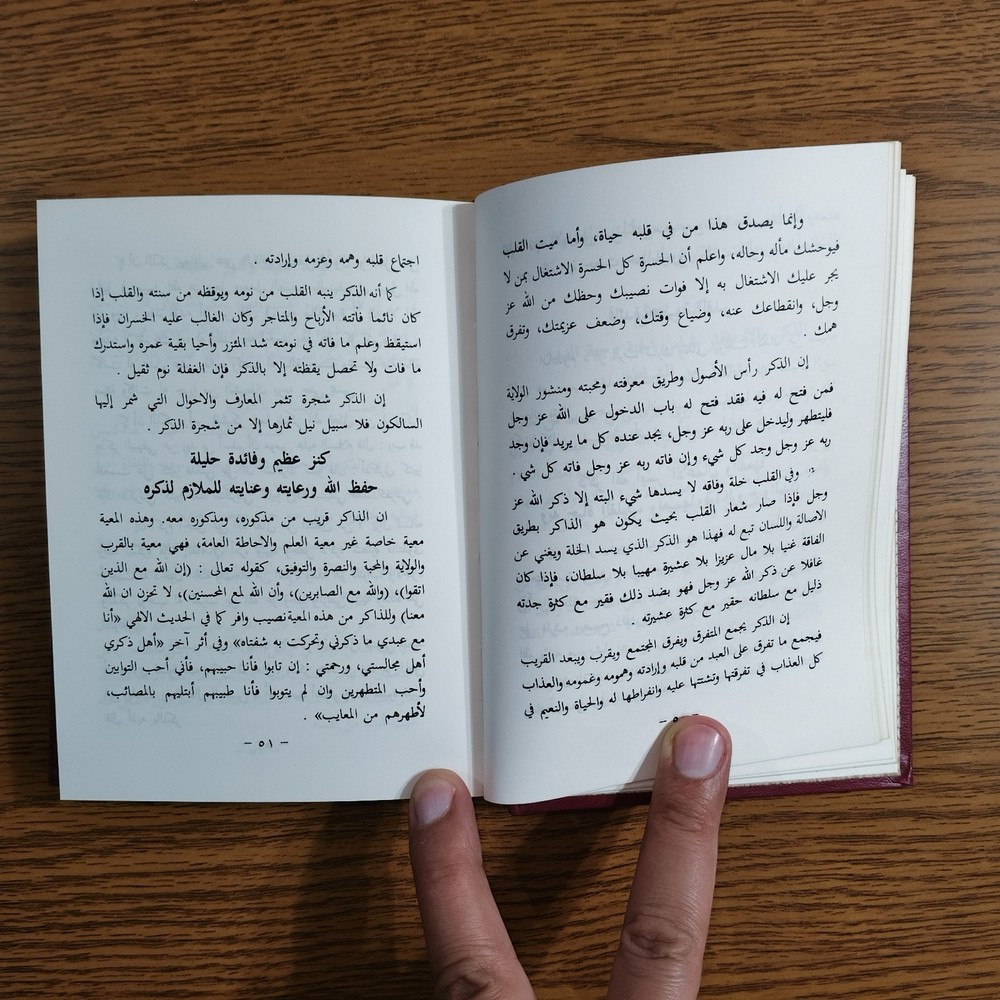 وإنما يصدق هذا من في قلبه حياة، وأما ميت القلب
فيوحشك مأله وحاله، واعلم أن الحسرة كل الحسرة الاشتغال بمن لا
يجر عليك الاشتغال به إلا فوات نصيبك وحظك من الله عز
وجل، وانقطاعك عنه، وضياع وقتك، وضعف عزيمتك، وتفرق
همك .
إن الذكر رأس الأصول وطريق معرفته ومحبته ومنشور الولاية
فمن فتح له فيه فقد فتح له باب الدخول على الله عز وجل
فليتطهر وليدخل على ربه عز وجل، يجد عنده كل ما يريد فإن وجد
ربه عز وجل وجد كل شيء وإن فاته ربه عز وجل فاته كل شي .
وفي القلب خلة وفاقه لا يسدها شيء البته إلا ذكر الله عز
وجل فإذا صار شعار القلب بحيث يكون هو الذاكر بطريق
الاصالة واللسان تبع له فهذا هو الذكر الذي يسد الخلة ويغني عن
الفاقة غنيا بلا مال عزيزا بلا عشيرة مهيبا بلا سلطان، فإذا كان
غافلا عن ذكر الله عز وجل فهو بضد ذلك فقير مع كثرة جدته
ذليل مع سلطانه حقير مع كثرة عشيرته .
إن الذكر يجمع المتفرق ويفرق المجتمع ويقرب ويبعد القريب
فيجمع ما تفرق على العبد من قلبه وإرادته وهمومه وغمومه والعذاب
كل العذاب في تفرقتها وتشتتها عليه وانفراطها له والحياة والنعيم في
اجتماع قلبه وهمه وعزمه وإرادته .
كما أنه الذكر ينبه القلب من نومه ويوقظه من سنته والقلب إذا
كان نائما فأتته الأرباح والمتاجر وكان الغالب عليه الخسران فإذا
استيقظ وعلم ما فاته في نومته شد المئزر وأحيا بقية عمره واستدرك
ما فات ولا تحصل يقظته إلا بالذكر فإن الغفلة نوم ثقيل .
إن الذكر شجرة تثمر المعارف والاحوال التي شمر إليها
السالكون فلا سبيل نيل ثمارها إلا من شجرة الذكر .
كنز عظيم وفائدة حليلة
حفظ الله ورعايته وعنايته للملازم لذكره
ان الذاكر قريب من مذكوره، ومذكوره معه. وهذه المعية
معية خاصة غير معية العلم والاحاطة العامة، فهي معية بالقرب
والولاية والمحبة والنصرة والتوفيق، كقوله تعالى : (إن الله مع الذين
اتقوا)، (والله مع الصابرين)، وأن الله لمع المحسنين)، لا تحزن ان الله
معنا) وللذاكر من هذه المعية نصيب وافر كما في الحديث الالهي «أنا
مع عبدي ما ذكرني وتحركت به شفتاه» وفي أثر آخر «أهل ذكري
أهل مجالستي، ورحمتي : إن تابوا فأنا حبيبهم، فأني أحب التوابين
وأحب المتطهرين وان لم يتوبوا فأنا طبيبهم أبتليهم بالمصائب،
لأطهرهم من المعايب» .
– ٥١ –